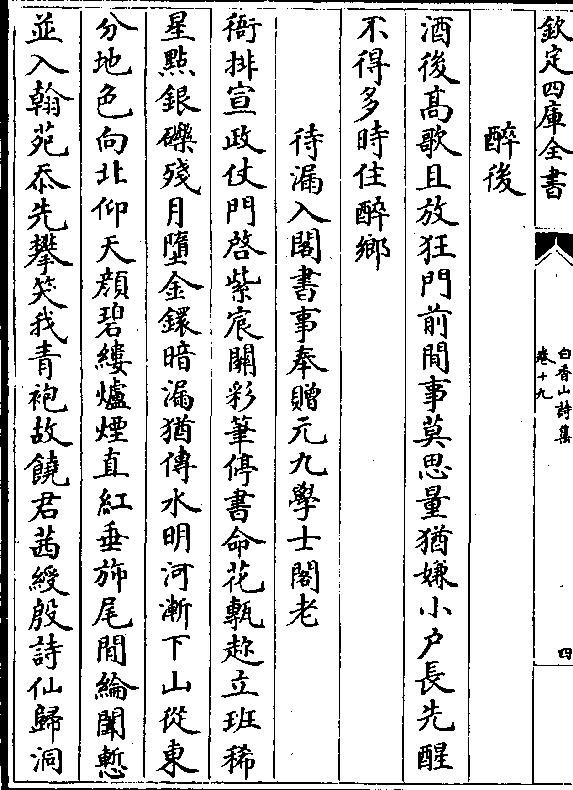 欽定四庫全書
白香山詩集
卷十九
四
醉後
酒後髙歌且放狂門前閒事莫思量猶嫌小户長先醒
不得多時住醉鄉
待漏入閣書事奉贈元九學士閣老
衙排宣政仗門啓紫宸關彩筆停書命花甎趂立班稀
星㸃銀礫殘月墮金鐶暗漏猶傳水明河漸下山從東
分地色向北仰天顔碧縷爐煙直紅垂斾尾閒綸闈慙
並入翰苑忝先攀笑我青袍故饒君茜綬殷詩仙歸洞